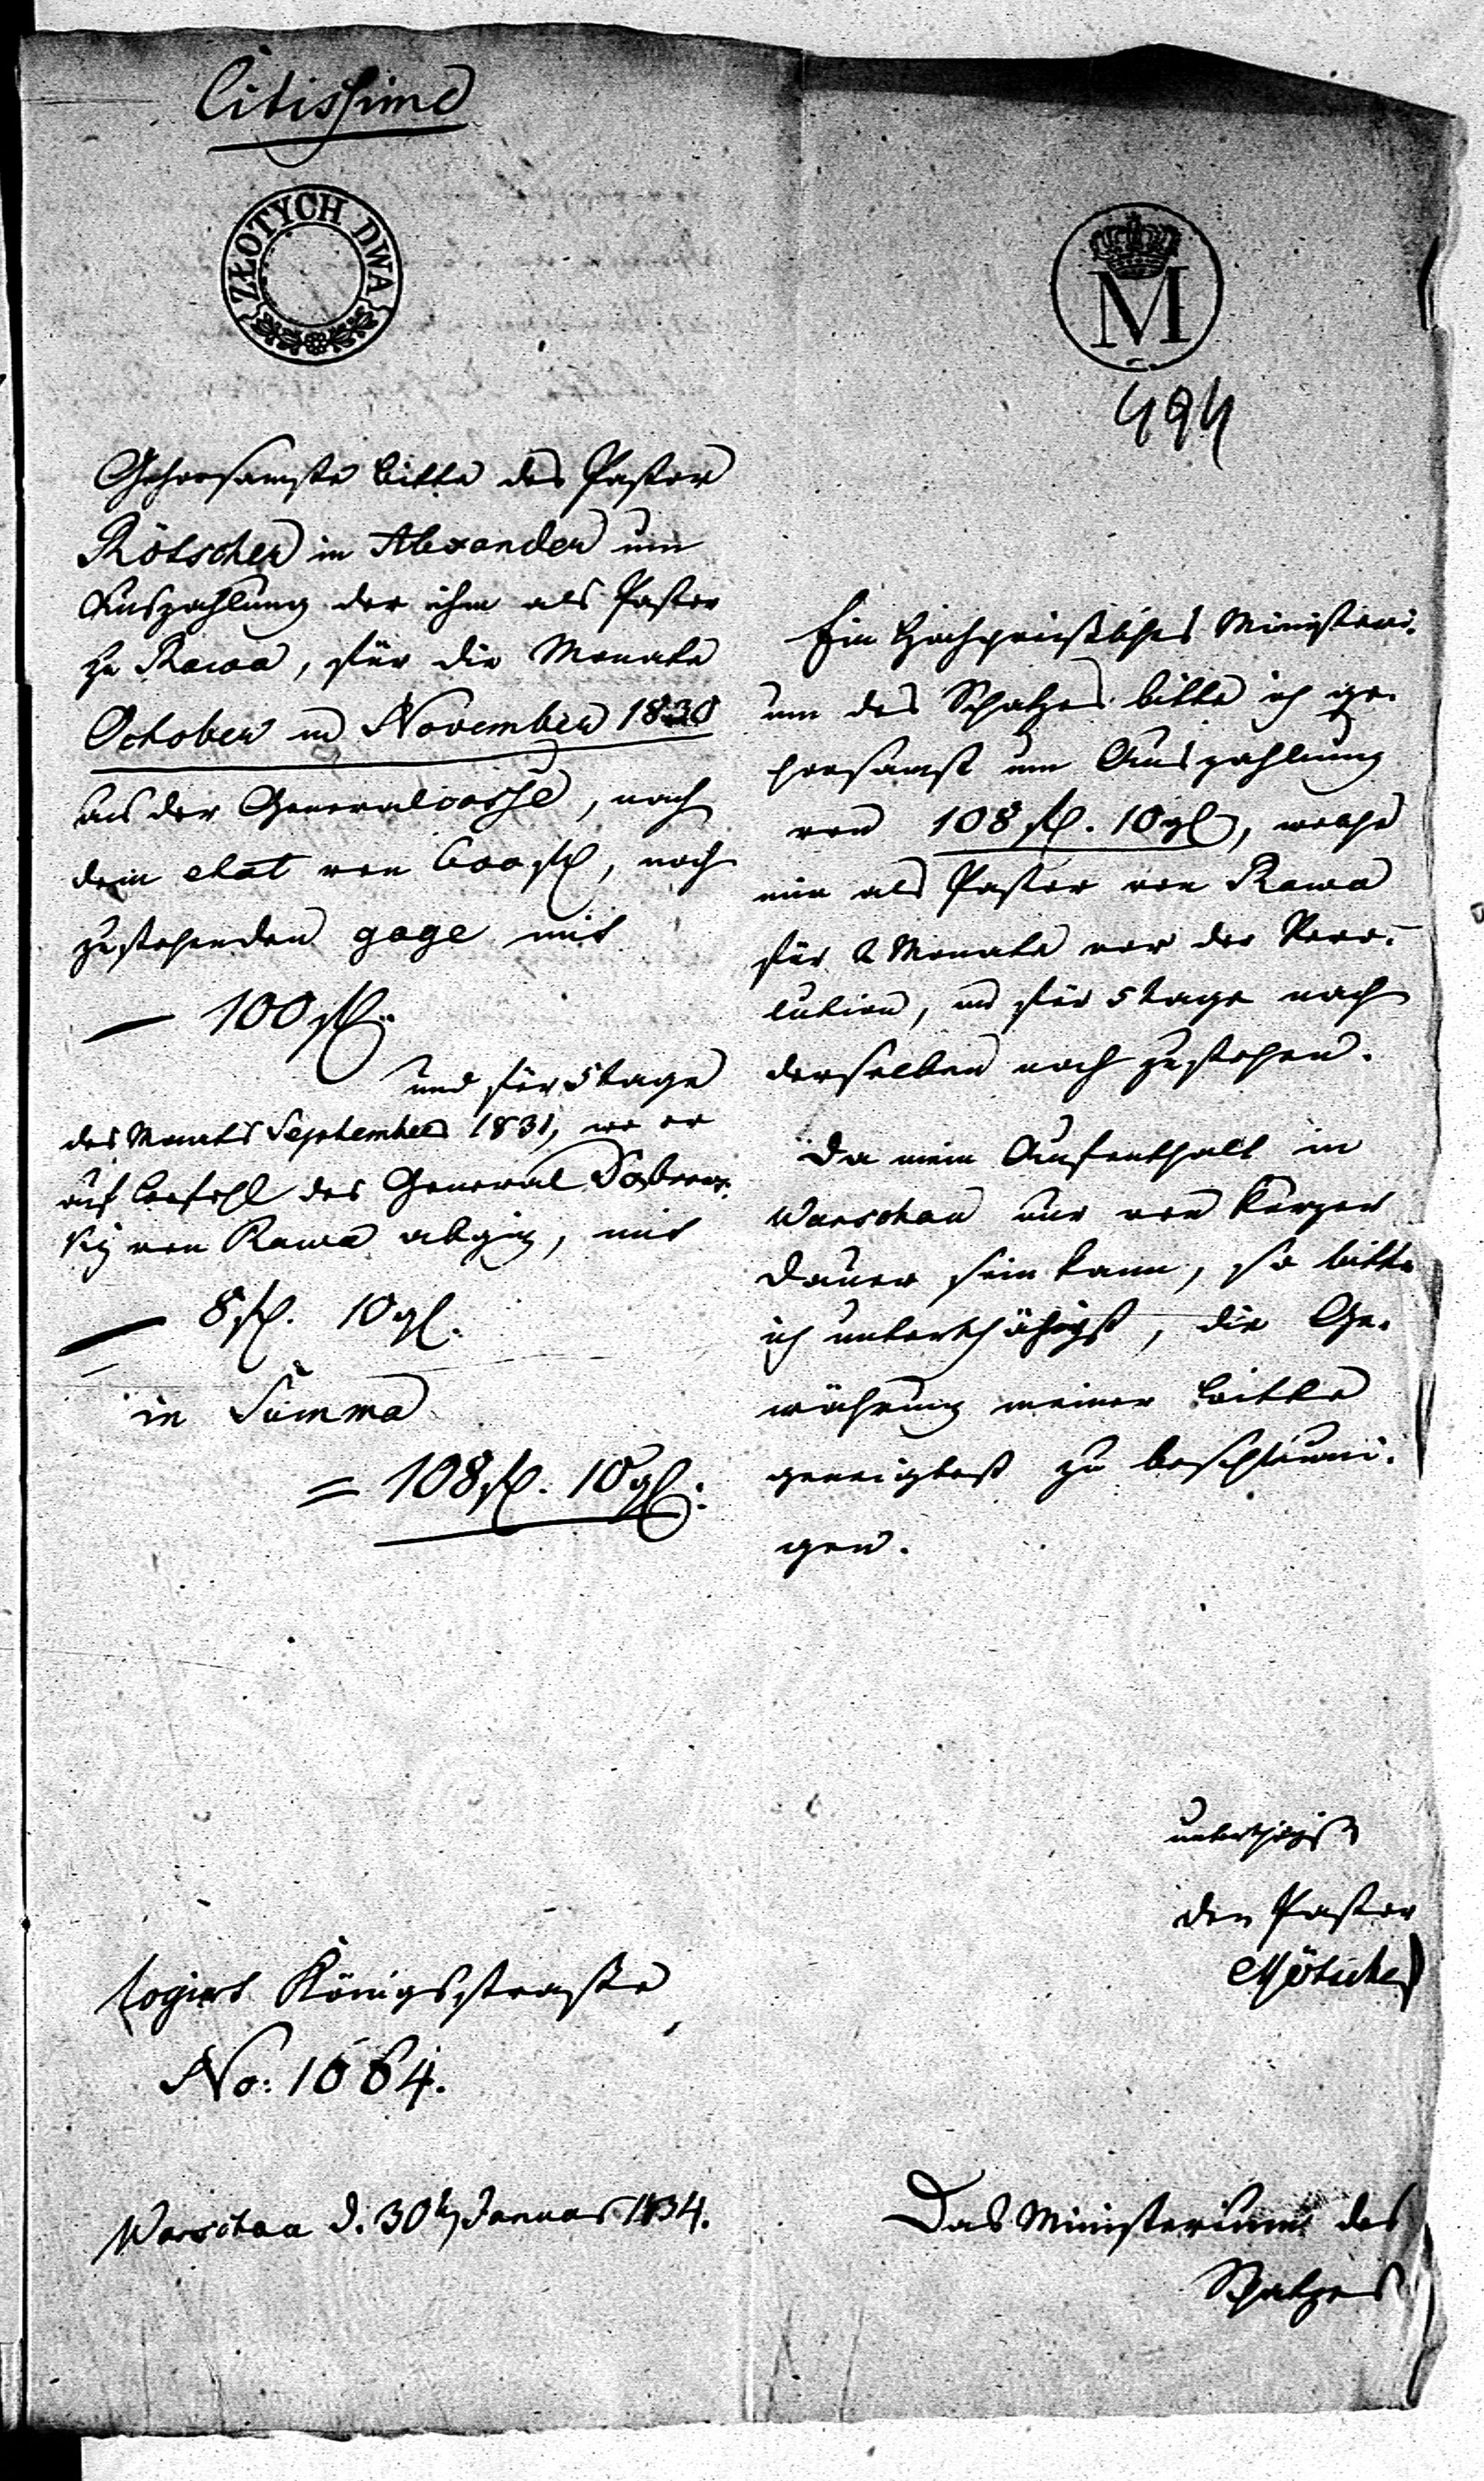 Citissime
ZŁOTYCH DWA
M
494
Gehorsamste Bitte des Pastor
Rötscher in Alexander um
Auszahlung der ihm als Pastor
zu Rawa, für die Monate
October und November 1830
aus der Generalcasse, nach
dem etat von 600 fl, noch
zustehenden gage mit
— 100 fl.
und für 5 Tage
des Monats September 1831, wo er
auf Befehl des General
von Rawa abging, mit
— 8 fl. 10 gl.
in Summa
= 108 fl. 10 gl.
logirt Königsstraße
No: 1064.
Warschau d. 30t Januar 1834.
Ein Hochpreißliches Ministeri-
um des Schatzes bitte ich ge-
horsamst um Auszahlung
von 108 fl. 10 gl, welche
mir als Pastor von Rawa
für 2 Monate vor der Revo-
lution, und für 5 Tage nach
derselben noch zustehen.
Da mein Aufenthalt in
Warschau nur von kurzer
Dauer sein kann, so bitte
ich unterthänigst, die Ge-
währung meiner Bitte
geneigtest zu beschleuni-
gen.
unterthänigst
der Pastor
Rötscher
Das Ministerium des
Schatzes